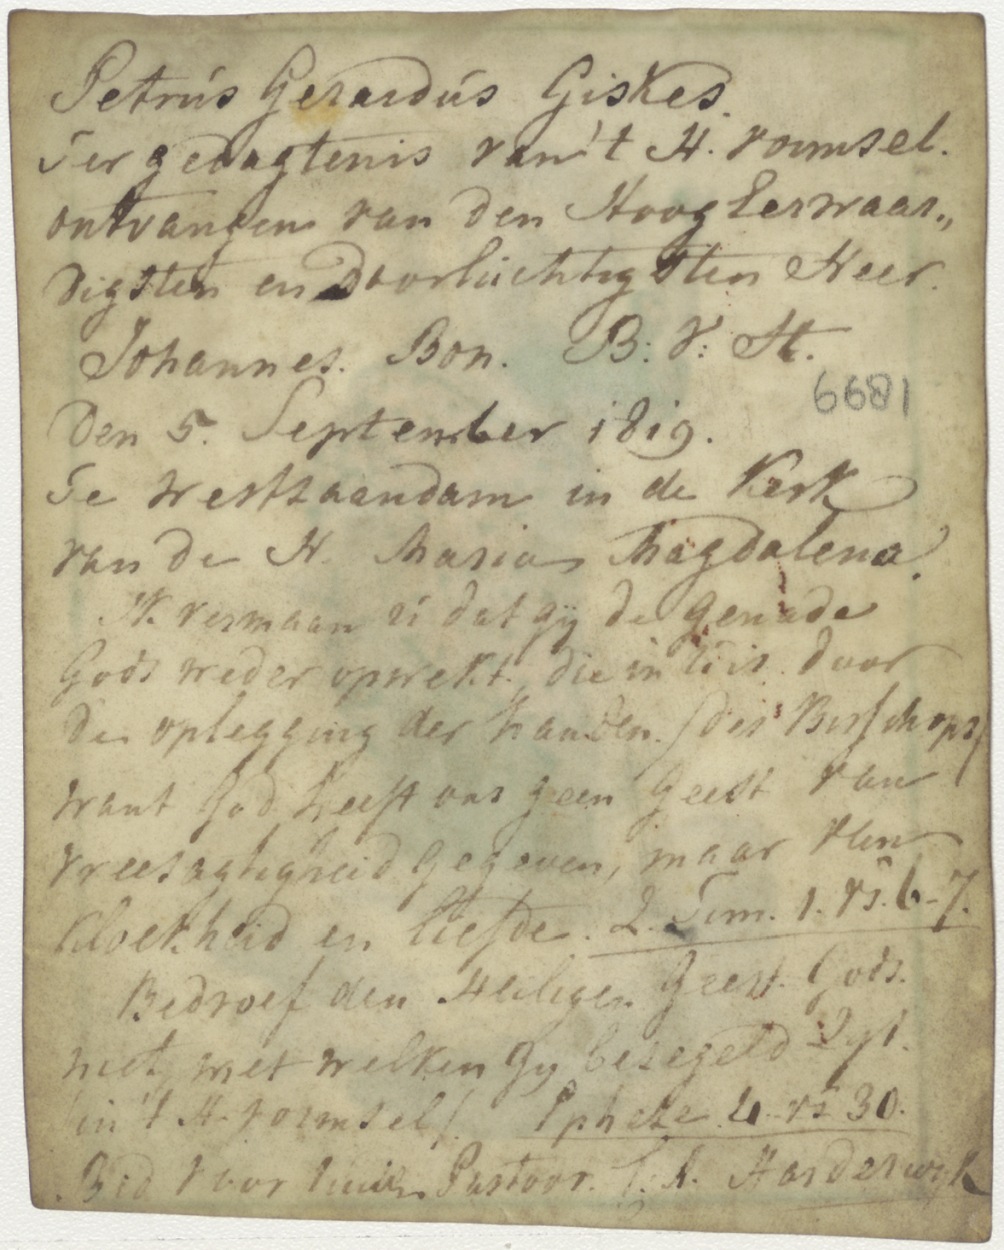 Petrús Gerardús Giskes.
Ter gedagtenis van 't H. vormsel.
ontvangen van den Hoog Eerwaar„
digsten en Doorlúchtigsten Heer.
Johannes. Bon. B: V: H.
6681
Den 5. September 1819.
Te Westzaandam in de Kerk
van de H. Maria Magdalena.
Ik vermaan ú dat gij de genade
Gods weder opwekt, die in ú is door
de oplegging der handen. (des Bisschops)
want God heeft ons geen geest van
vreesagtigheid gegeven, maar van
kloekheid en liefde. 2. Tim. 1. vs. 6-7.
Bedroef den Heiligen Geest Gods.
niet, met welken gy bezegeld zyt.
(in 't H. vormsel). Epheze 4. vs 30.
Bid voor úwen Pastoor. Harderwyk